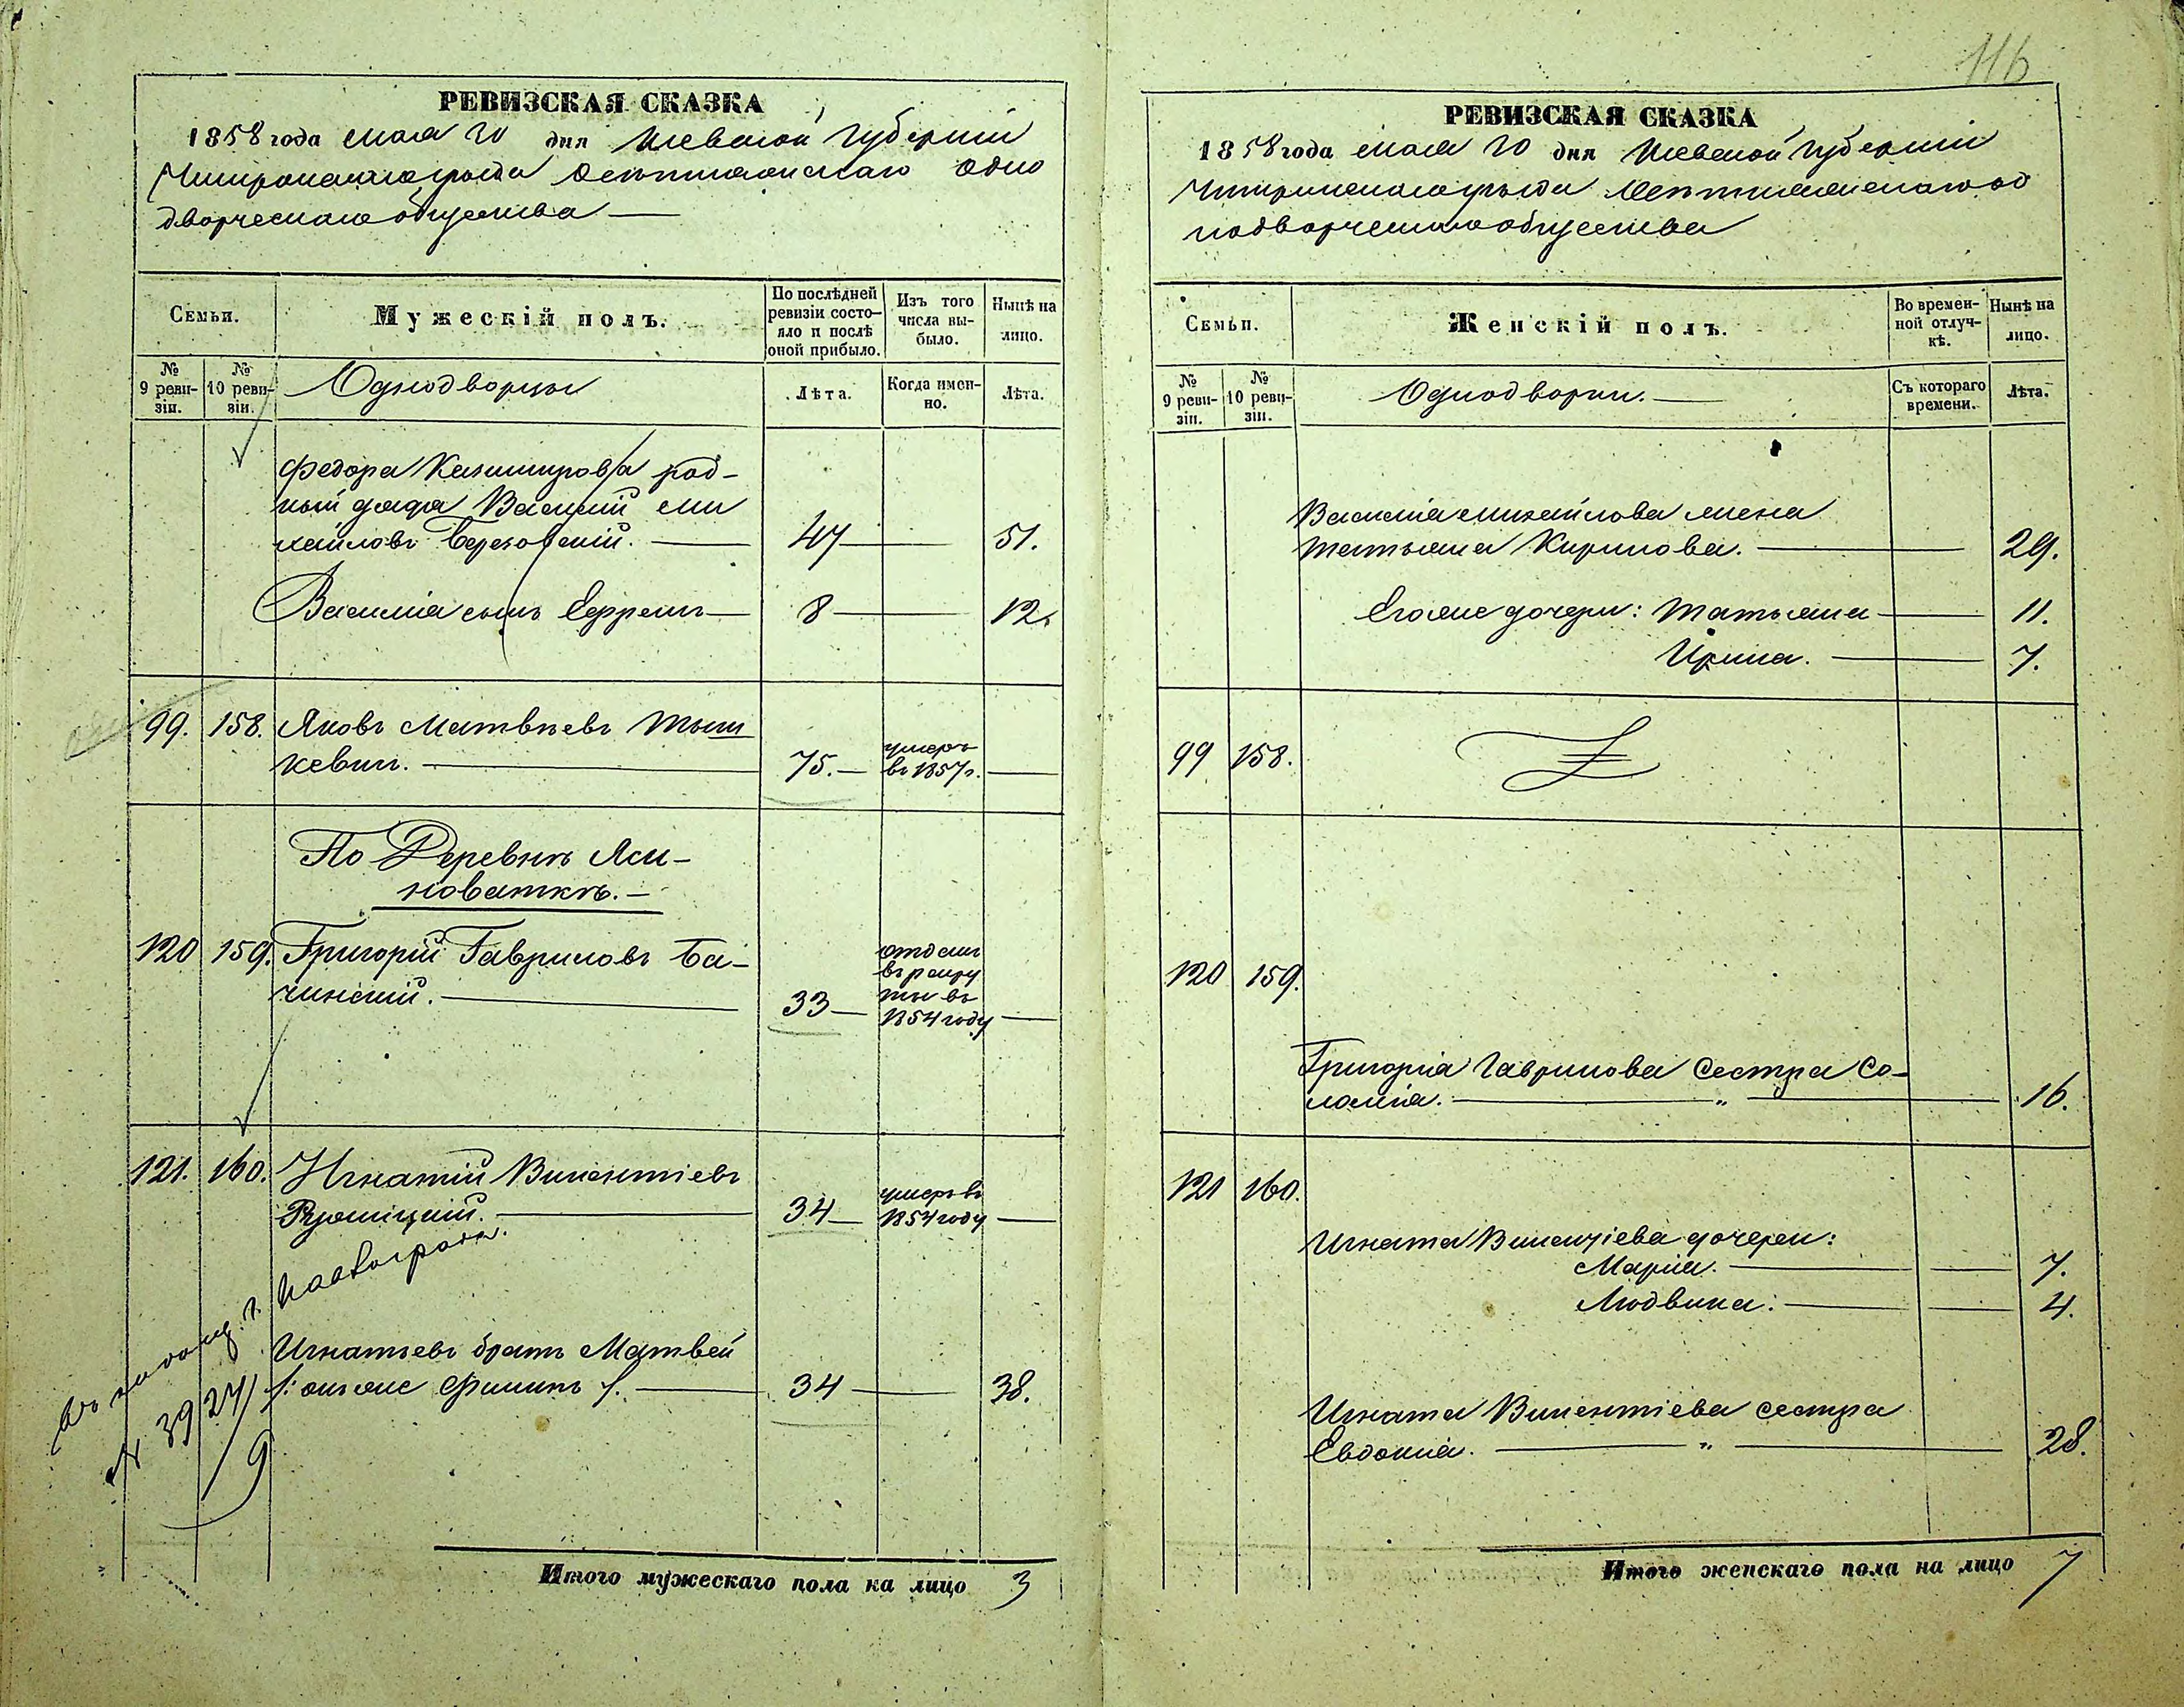 116
РЕВИЗСКАЯ СКАЗКА
1858 года мая 20 дня Киевской Губерніи
Чигиринскаго уѣзда одно
дворческаго общества —
Семьи.
Мужескій полъ.
По послѣдней ревизіи состо-
яло и послѣ
оной прибыло.
Изъ того
числа вы-
было.
Нынѣ на
лицо.
№ 9 реви-
зіи.
№ 10 реви-
зіи.
Однодворцы
Лѣта.
Когда имен-
но.
Лѣта.
Федора Казимирова род-
ный дядя Василій Ми
хайловъ Березовскій. — 47 — 51.
Василія сынъ Ефремъ — 8 — 12.
99. 158. Яковъ Матвѣевъ Тыш
кевич. — 75. — умеръ
въ 1857 г. —
По Деревнѣ Яси-
новаткѣ. —
120 159. Григорій Гавриловъ Ба-
чинскій. — 33 — отданъ
въ рекру
ты въ
1854 году —
121. 160. Игнатій Викентіевъ
34 — умеръ въ
1854 году —
Игнатьевъ братъ Матвей
/: онъ же Филипъ /. — 34 — 38.
№ 3927/9
Итого мужескаго пола на лицо 3
РЕВИЗСКАЯ СКАЗКА
1858 года мая 20 дня Киевской Губерніи
Чигиринскаго уѣзда од
нодворческаго общества
Семьи.
Женскій полъ.
Во времен-
ной отлуч-
кѣ.
Нынѣ на
лицо.
№ 9 реви-
зіи.
№ 10 реви-
зіи.
Однодворки. —
Съ котораго
времени.
Лѣта.
Василія Михайлова жена
Татьяна Кирилова. — 29.
Его же дочери: Татьяна — 11.
Ирина. — 7.
99 158.
120 159.
Григорія Гаврилова сестра Со-
ломія. — " — 16.
121 160.
Игната Викентіева дочери:
Марія. — 7.
Людвика. — 4.
Игната Викентіева сестра
Евдокія. — " — 28.
Итого женскаго пола на лицо 7